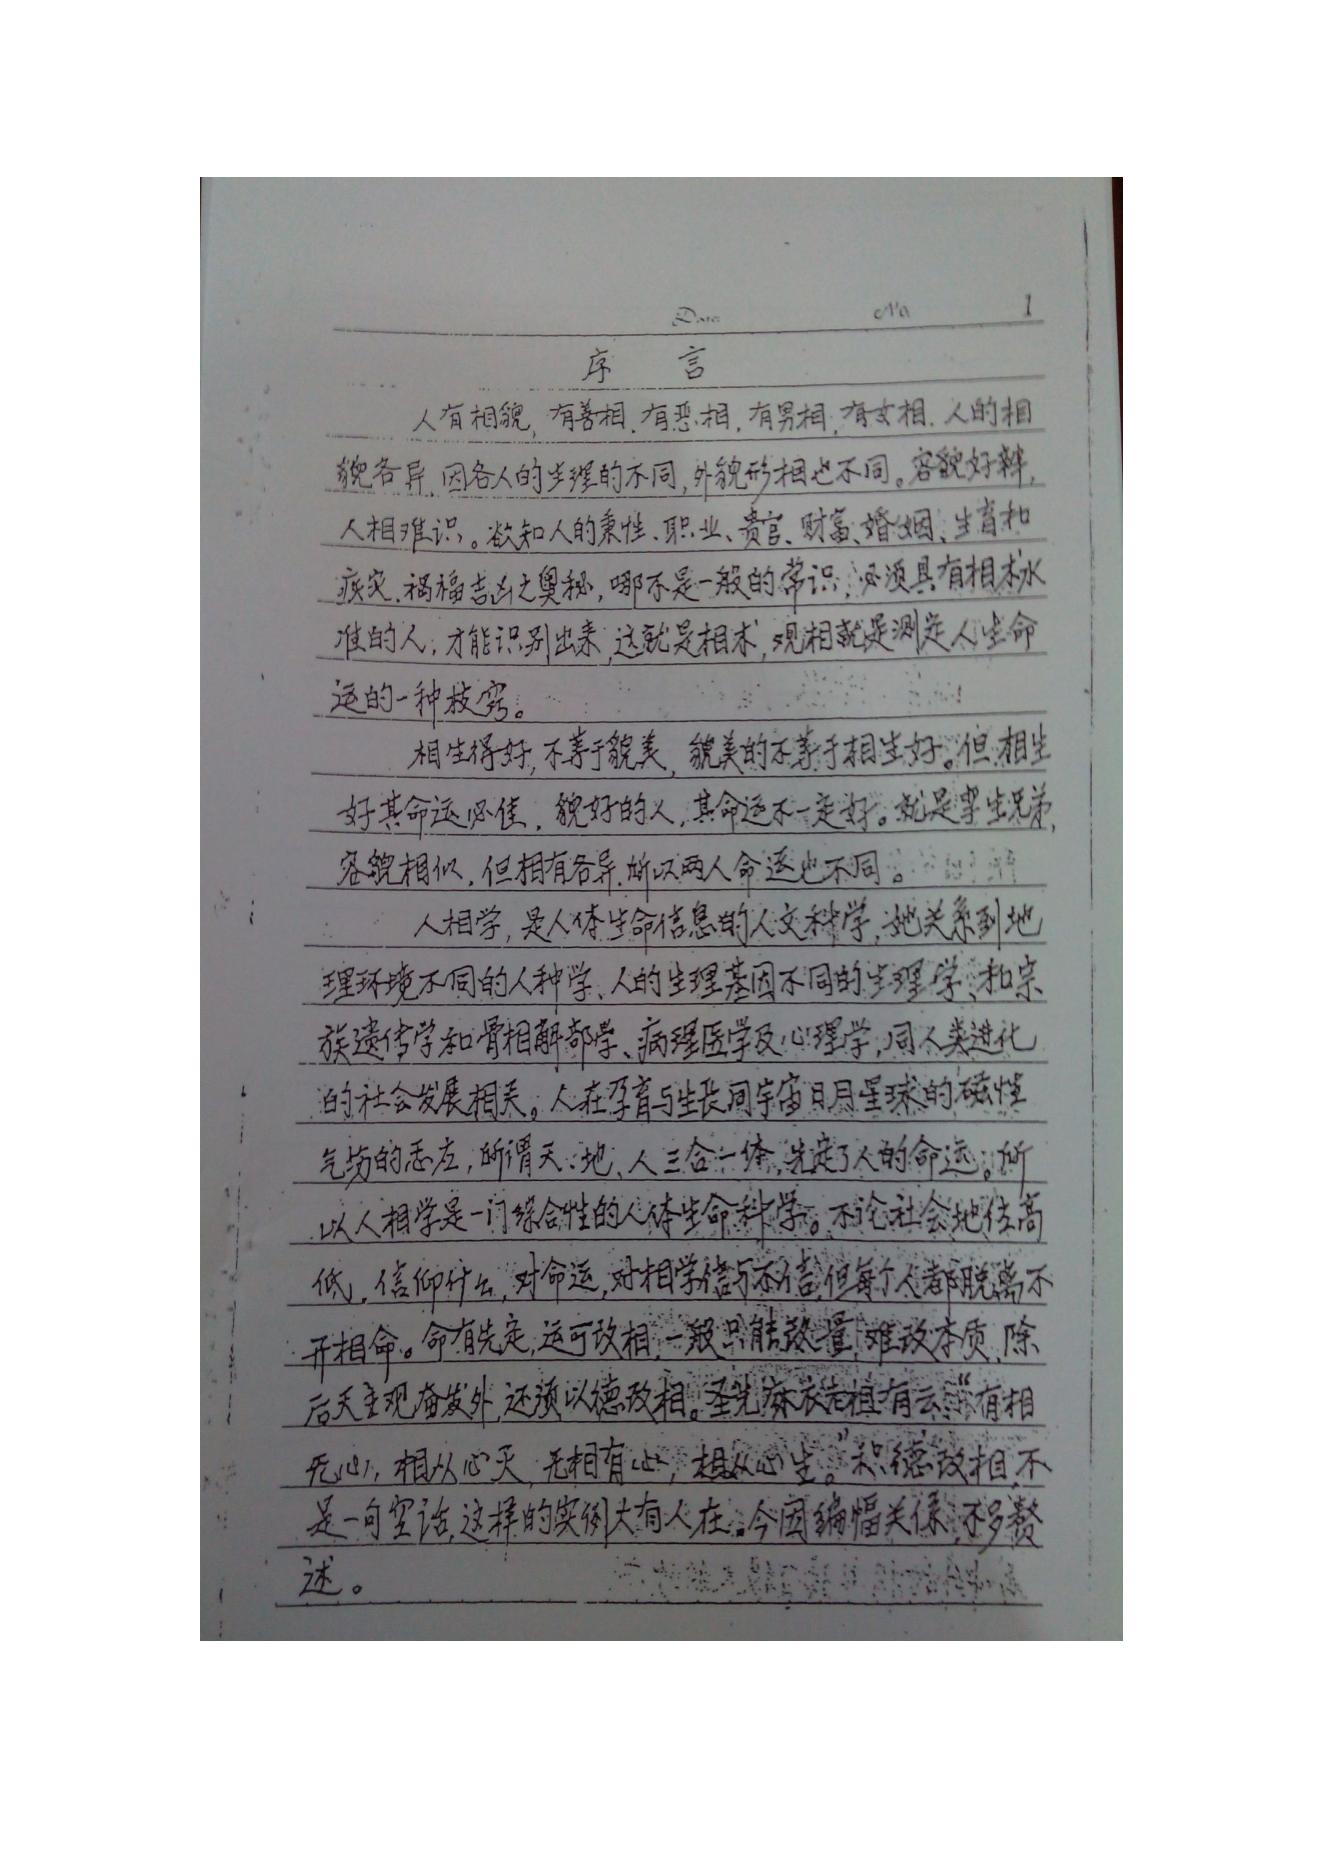 Date No 1
序 言
人有相貌，有善相，有恶相，有男相，有女相．人的相
貌各异，因各人的生理的不同，外貌形相也不同。容貌好辨，
人相难识。欲知人的秉性、职业、贵官、财富、婚姻、生育和
疾灾、祸福吉凶之奥秘，哪不是一般的常识，必须具有相术水
准的人，才能识别出来，这就是相术，观相就是测定人生命
运的一种技窍。
相生得好，不等于貌美，貌美的不等于相生好。但相生
好其命运必佳，貌好的人，其命运不一定好。就是孪生兄弟，
容貌相似，但相有各异，所以两人命运也不同。
人相学，是人体生命信息的人文科学，她关系到地
理环境不同的人种学、人的生理基因不同的生理学、和宗
族遗传学和骨相解部学、病理医学及心理学，同人类进化
的社会发展相关。人在孕育与生长间宇宙日月星球的磁性
气场的志左，所谓天、地、人三合一体，先定了人的命运。所
以人相学是一门综合性的人体生命科学。不论社会地位高
低，信仰什么，对命运，对相学信与不信，但每个人都脱离不
开相命。命有先定，运可改相，一般只能改量，难改本质，除
后天主观奋发外，还须以德改相。圣先麻衣老祖有云："有相
无心，相从心灭，无相有心，相从心生。"积德改相，不
是一句空话，这样的实例大有人在。今因编幅关系，不多赘
述。